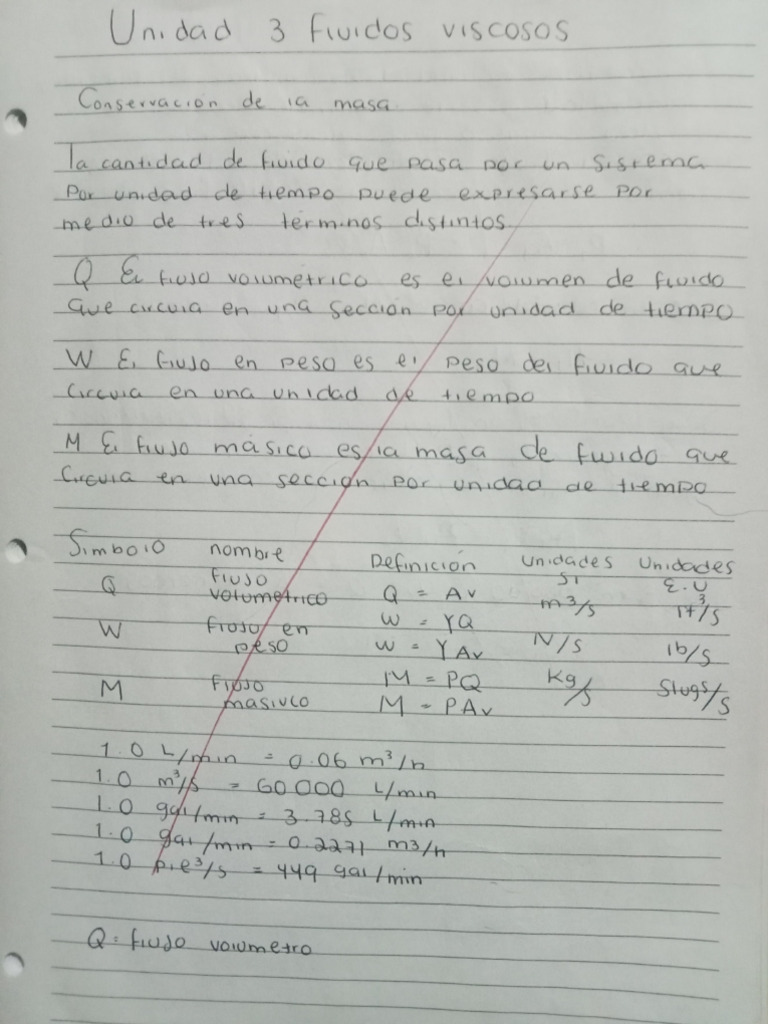 Unidad 3 fluidos viscosos
Conservacion de la masa
la cantidad de fluido que pasa por un sistema
Por unidad de tiempo puede expresarse por
medio de tres terminos distintos.
Q El flujo volumetrico es el volumen de fluido
que circula en una sección por unidad de tiempo
W El flujo en peso es el peso del fluido que
Circula en una unidad de tiempo
M El flujo másico es la masa de fluido que
Circula en una sección por unidad de tiempo
Simbolo nombre Definición unidades SI Unidades E.U
Q flujo volumetrico Q = Av m³/s ft³/s
W flujo en peso W = γQ W = γAv N/s lb/s
M flujo masivco M = ρQ M = ρAv Kg/s Slugs/s
1.0 L/min = 0.06 m³/h
1.0 m³/s = 60000 L/min
1.0 gal/min = 3.785 L/min
1.0 gal/min = 0.2271 m3/h
1.0 pie³/s = 449 gal/min
Q = flujo volumetro